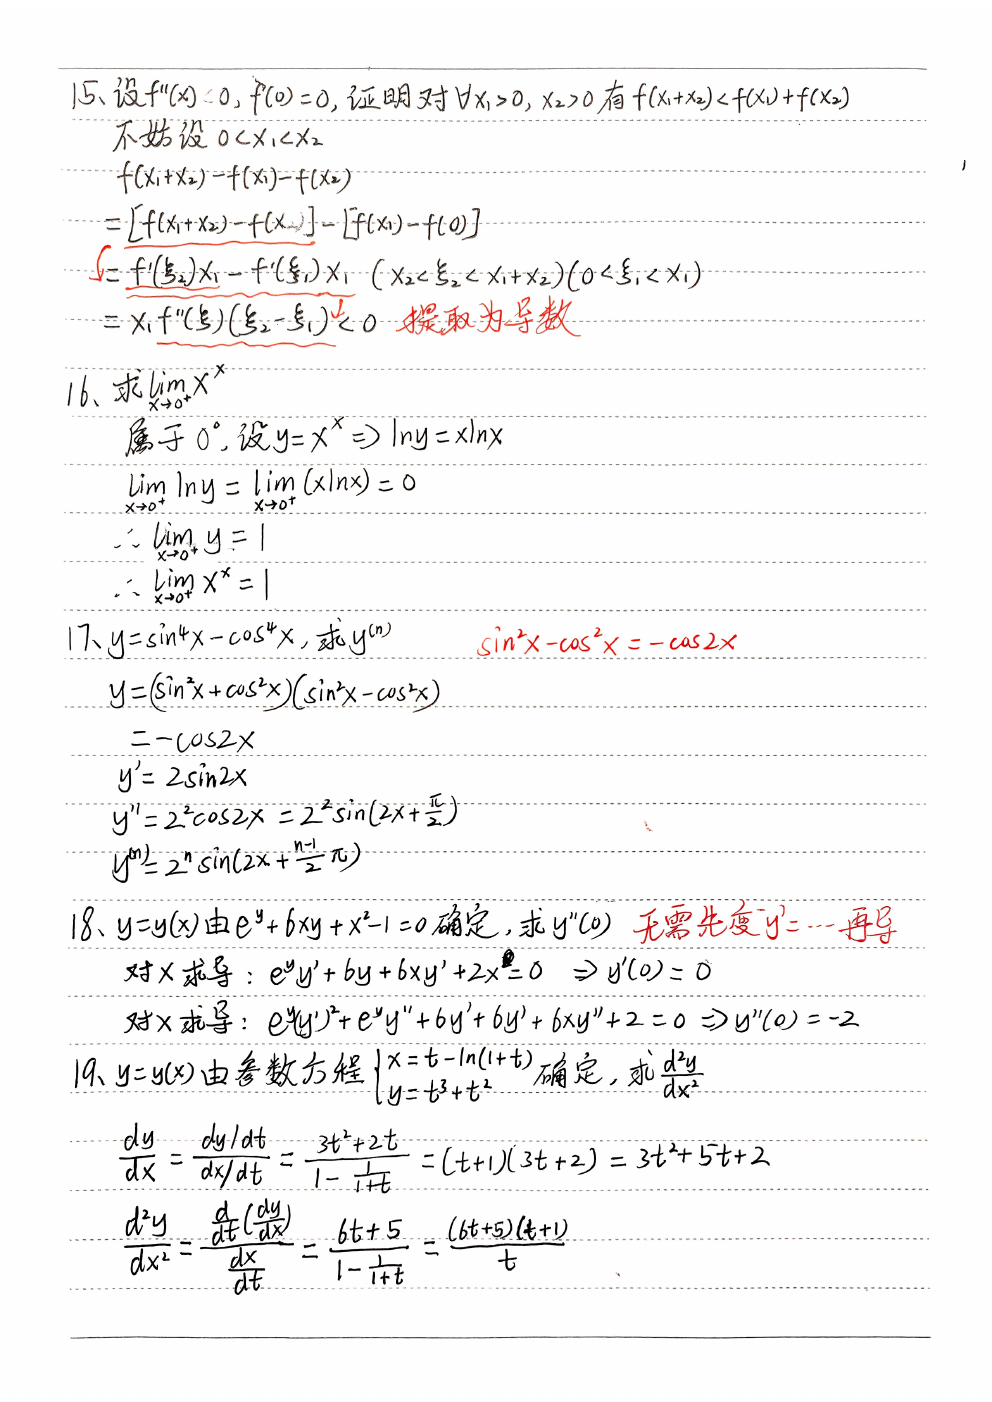 15、设f''(x)<0, f(0)=0, 证明对∀x₁>0, x₂>0有f(x₁+x₂)<f(x₁)+f(x₂)
不妨设 0<x₁<x₂
f(x₁+x₂)-f(x₁)-f(x₂)
=[f(x₁+x₂)-f(x₂)]-[f(x₁)-f(0)]
=f'(ξ₂)x₁-f'(ξ₁)x₁ (x₂<ξ₂<x₁+x₂)(0<ξ₁<x₁)
=x₁f''(ξ)(ξ₂-ξ₁)<0 提取为导数
16、求lim x→0⁺ xˣ
属于0⁰,设y=xˣ⇒lny=xlnx
lim x→0⁺ lny=lim x→0⁺ (xlnx)=0
∴ lim x→0⁺ y=1
∴ lim x→0⁺ xˣ=1
17、y=sin⁴x-cos⁴x,求y⁽ⁿ⁾ sin²x-cos²x=-cos2x
y=(sin²x+cos²x)(sin²x-cos²x)
=-cos2x
y'=2sin2x
y''=2²cos2x=2²sin(2x+π/2)
y⁽ⁿ⁾=2ⁿsin(2x+(n-1)/2 π)
18、y=y(x)由eʸ+6xy+x²-1=0确定,求y''(0) 无需先变y'=…再导
对x求导: eʸy'+6y+6xy'+2x=0 ⇒y'(0)=0
对x求导: eʸ(y')²+eʸy''+6y'+6y'+6xy''+2=0⇒y''(0)=-2
19、y=y(x)由参数方程{x=t-ln(1+t) y=t³+t²确定,求d²y/dx²
dy/dx=(dy/dt)/(dx/dt)=(3t²+2t)/(1-1/(1+t))=(t+1)(3t+2)=3t²+5t+2
d²y/dx²=(d/dt(dy/dx))/(dx/dt)=(6t+5)/(1-1/(1+t))=(6t+5)(t+1)/t